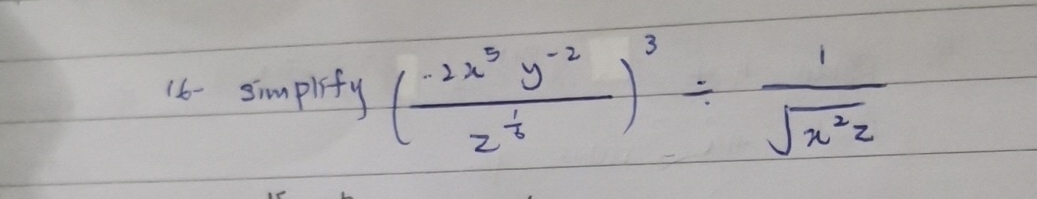 16- simplify (-2x⁵ y⁻² / z^(1/6))³ ÷ 1 / √(x²z)